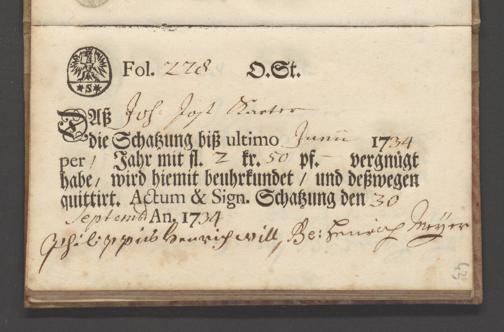 *S*
Fol. 228 O.St.
Daß Joh. Jost
die Schatzung biß ultimo Junii 1734
per / Jahr mit fl. 2 kr. 50 pf. - vergnügt
habe / wird hiemit beuhrkundet / und deßwegen
quittirt. Actum & Sign. Schatzung den 30
Septemb An. 1734
Philippus Henrich Will, Henrich Meÿer